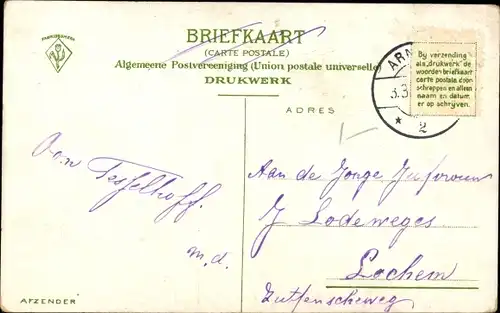 FABRIEKSMERK
BRIEFKAART
(CARTE POSTALE)
Algemeene Postvereeniging (Union postale universelle)
DRUKWERK
ARN
3.3
2
Bij verzending
als "drukwerk" de
woorden briefkaart
carte postale door-
schrappen en alleen
naam en datum
er op schrijven.
ADRES
Tesselhoff.
m.d.
Aan de Jonge Jufvrouw
J Lodeweges
Lochem
Zutfenscheweg
AFZENDER